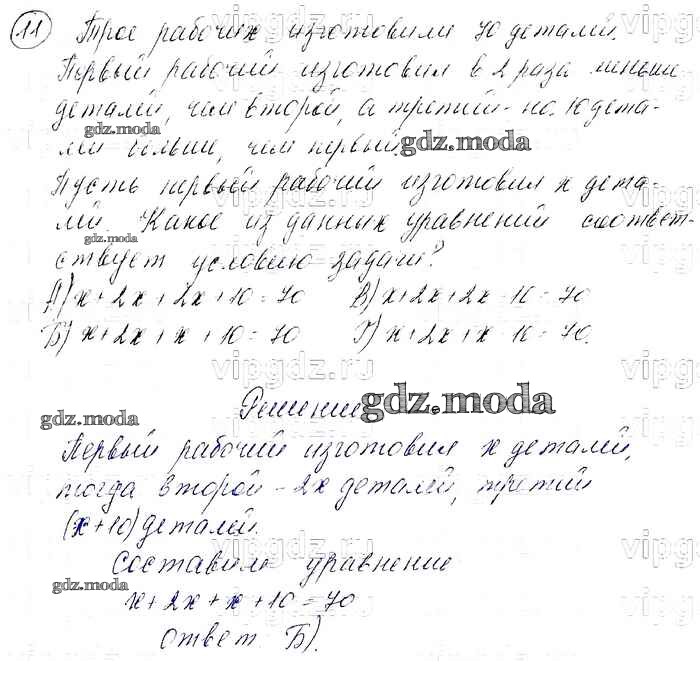 11 Трое рабочих изготовили 70 деталей.
Первый рабочий изготовил в 2 раза меньше
деталей, чем второй, а третий - на 10 дета-
лей больше, чем первый.
Пусть первый рабочий изготовил x дета-
лей. Какое из данных уравнений соответ-
ствует условию задачи?
А) x + 2x + 2x + 10 = 70 В) x + 2x + 2x - 10 = 70
Б) x + 2x + x + 10 = 70 Г) x + 2x + x - 10 = 70.
Решение
Первый рабочий изготовил x деталей,
тогда второй - 2x деталей, третий
(x + 10) деталей.
Составим уравнение
x + 2x + x + 10 = 70
ответ Б).
gdz.moda
gdz.moda
gdz.moda
gdz.moda
gdz.moda
gdz.moda
gdz.moda
vipgdz.ru